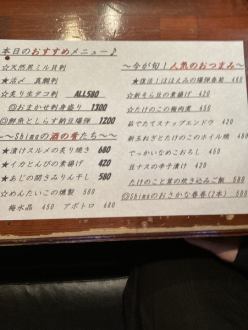 本日のおすすめメニュー♪
☆天然真ミル貝刺
★活〆 真鯛刺
☆炙り水タコ刺 ALL580
◎おまかせ刺身盛り 1300
◎鮮魚としらす納豆爆弾 1200
～Shimaの酒の肴たち～
★漬けスルメの炙り焼き 680
★イカとんびの素揚げ 420
★あじの開きみりん干し 580
☆めんたいこの燻製 580
梅水晶 450 アボトロ 480
～今が旬！人気のおつまみ～
★復活！ほほえみの爆弾春菊 450
☆新そら豆の素揚げ 420
☆たけのこの梅肉煮 450
茹でたてスナップエンドウ 420
新玉ねぎとたけのこのホイル焼 480
でっかいなめこおろし 450
豆ナスの辛子漬け 420
たけのこと茸の炊き込みご飯 680
◎Shimaのおさかな春巻(2本) 580